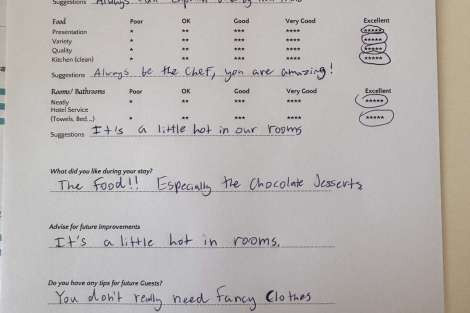 Suggestions Always
Food Poor OK Good Very Good Excellent
Presentation * ** *** **** *****
Variety * ** *** **** *****
Quality * ** *** **** *****
Kitchen (clean) * ** *** **** *****
Suggestions Always be the chef, you are amazing!
Rooms/ Bathrooms Poor OK Good Very Good Excellent
Neatly * ** *** **** *****
Hotel Service
(Towels, Bed...) * ** *** **** *****
Suggestions It's a little hot in our rooms
What did you like during your stay?
The food!! Especially the chocolate desserts
Advise for future improvements
It's a little hot in rooms.
Do you have any tips for future Guests?
You don't really need fancy clothes